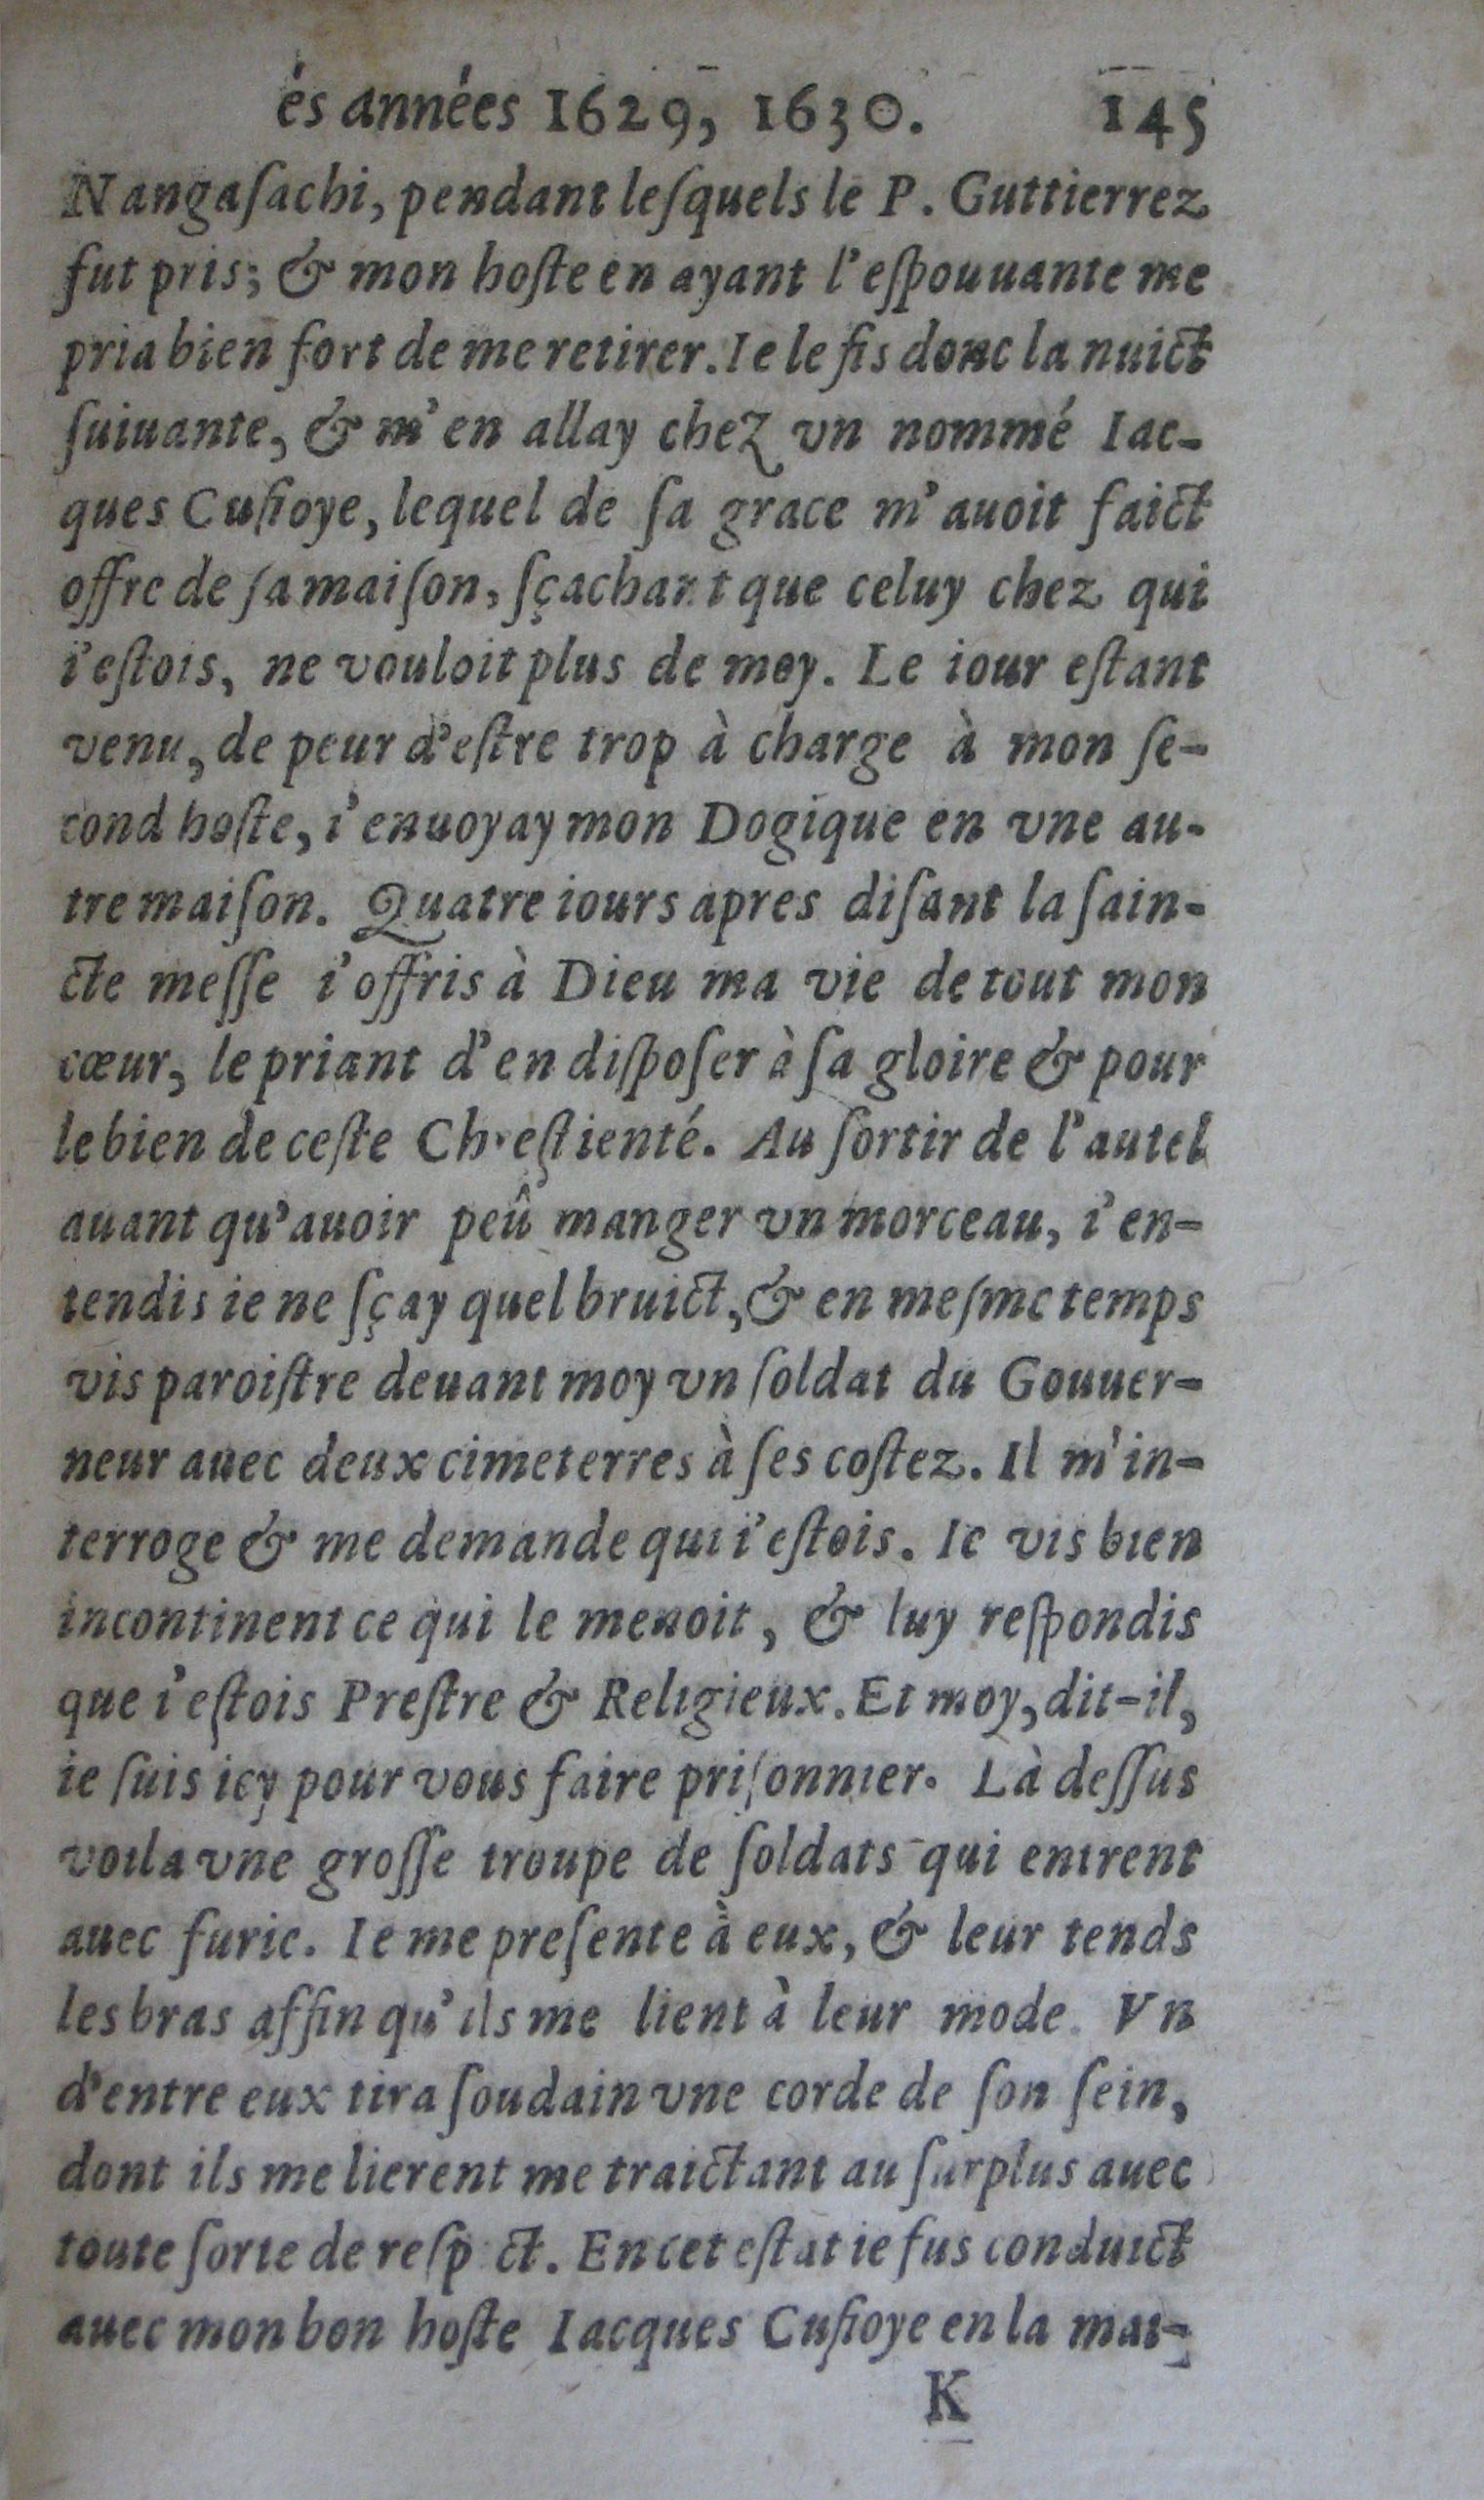 és années 1629, 1630. 145
Nangaſachi, pendant leſquels le P. Guttierrez
fut pris; & mon hoſte en ayant l'eſpouuante me
pria bien fort de me retirer. Ie le fis donc la nuict
ſuiuante, & m'en allay chez vn nommé Iac-
ques Cuſioye, lequel de ſa grace m'auoit faict
offre de ſa maiſon, ſçachant que celuy chez qui
i'eſtois, ne vouloit plus de moy. Le iour eſtant
venu, de peur d'eſtre trop à charge à mon ſe-
cond hoſte, i'enuoyay mon Dogique en vne au-
tre maiſon. Quatre iours apres diſant la ſain-
cte meſſe i'offris à Dieu ma vie de tout mon
cœur, le priant d'en diſpoſer à ſa gloire & pour
le bien de ceſte Chreſtienté. Au ſortir de l'autel
auant qu'auoir peû manger vn morceau, i'en-
tendis ie ne ſçay quel bruict, & en meſme temps
vis paroiſtre deuant moy vn ſoldat du Gouuer-
neur auec deux cimeterres à ſes coſtez. Il m'in-
terroge & me demande qui i'eſtois. Ie vis bien
incontinent ce qui le menoit, & luy reſpondis
que i'eſtois Preſtre & Religieux. Et moy, dit-il,
ie ſuis icy pour vous faire priſonnier. Là deſſus
voila vne groſſe troupe de ſoldats qui entrent
auec furie. Ie me preſente à eux, & leur tends
les bras affin qu'ils me lient à leur mode. Vn
d'entre eux tira ſoudain vne corde de ſon ſein,
dont ils me lierent me traictant au ſurplus auec
toute ſorte de reſpect. En cet eſtat ie fus conduict
auec mon bon hoſte Iacques Cuſioye en la mai-
K